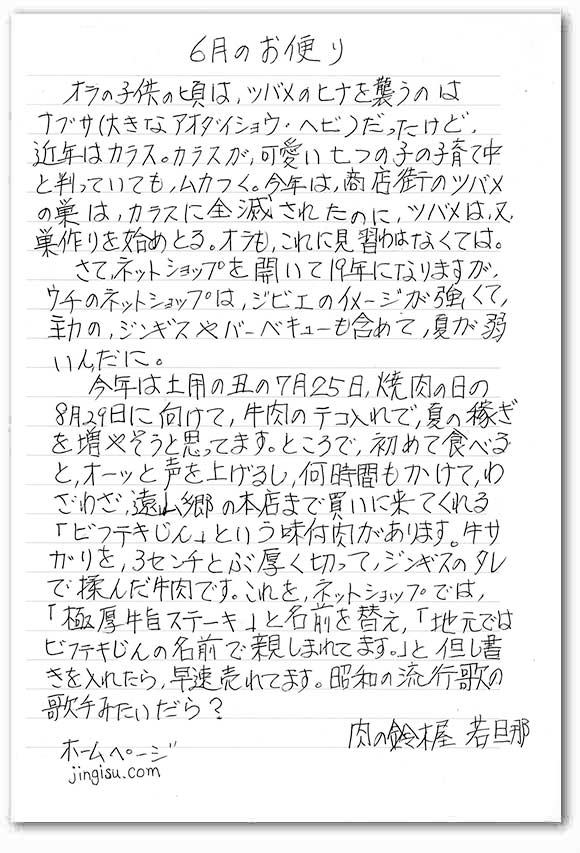 6月のお便り
オラの子供の頃は,ツバメのヒナを襲うのは
ナブサ(大きなアオダイショウ・ヘビ)だったけど,
近年はカラス。カラスが,可愛い七つの子の子育て中
と判っていても,ムカつく。今年は,商店街のツバメ
の巣は,カラスに全滅されたのに,ツバメは,又,
巣作りを始めとる。オラも,これに見習わなくては。
さて,ネットショップを開いて19年になりますが,
ウチのネットショップは,ジビエのイメージが強くて,
主力の,ジンギスやバーベキューも含めて,夏が弱
いんだに。
今年は土用の丑の7月25日,焼肉の日の
8月29日に向けて,牛肉のテコ入れで,夏の稼ぎ
を増やそうと思ってます。ところで,初めて食べる
と,オーッと声を上げるし,何時間もかけて,わ
ざわざ,遠山郷の本店まで買いに来てくれる
「ビフテキじん」という味付肉があります。牛サ
ガリを,3センチとぶ厚く切って,ジンギスのタレ
で揉んだ牛肉です。これを,ネットショップでは,
「極厚牛旨ステーキ」と名前を替え,「地元では
ビフテキじんの名前で親しまれてます。」と但し書
きを入れたら,早速売れてます。昭和の流行歌の
歌手みたいだら?
肉の鈴木屋 若旦那
ホームページ
jingisu.com